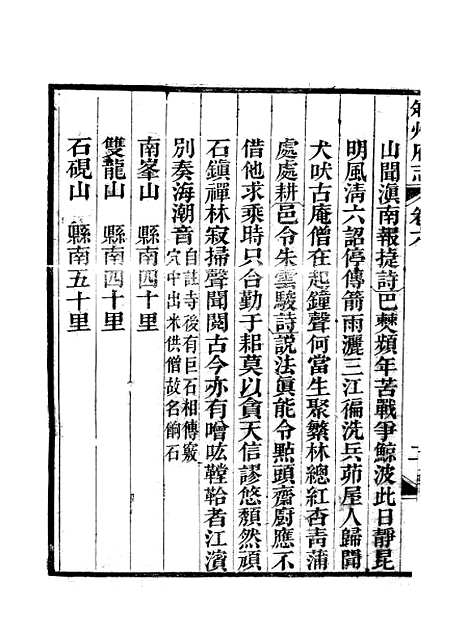 州府志 卷六
山聞滇南報捷詩巴僰頻年苦戰爭鯨波此日靜昆
明風淸六詔停傳箭雨灑三江徧洗兵茆屋人歸聞
犬吠古庵僧在起鐘聲何當生聚繁林總紅杏靑蒲
處處耕邑令朱雲駿詩說法眞能令點頭齋廚應不
借他求乘時只合勤于耜莫以貪天信謬悠頽然頑
石鎮禪林寂掃聲聞閱古今亦有噌吰鞺鞳者江濱
別奏海潮音自註寺後有巨石相傳竅
穴中出米供僧故名餉石
南峯山 縣南四十里
雙龍山 縣南四十里
石硯山 縣南五十里